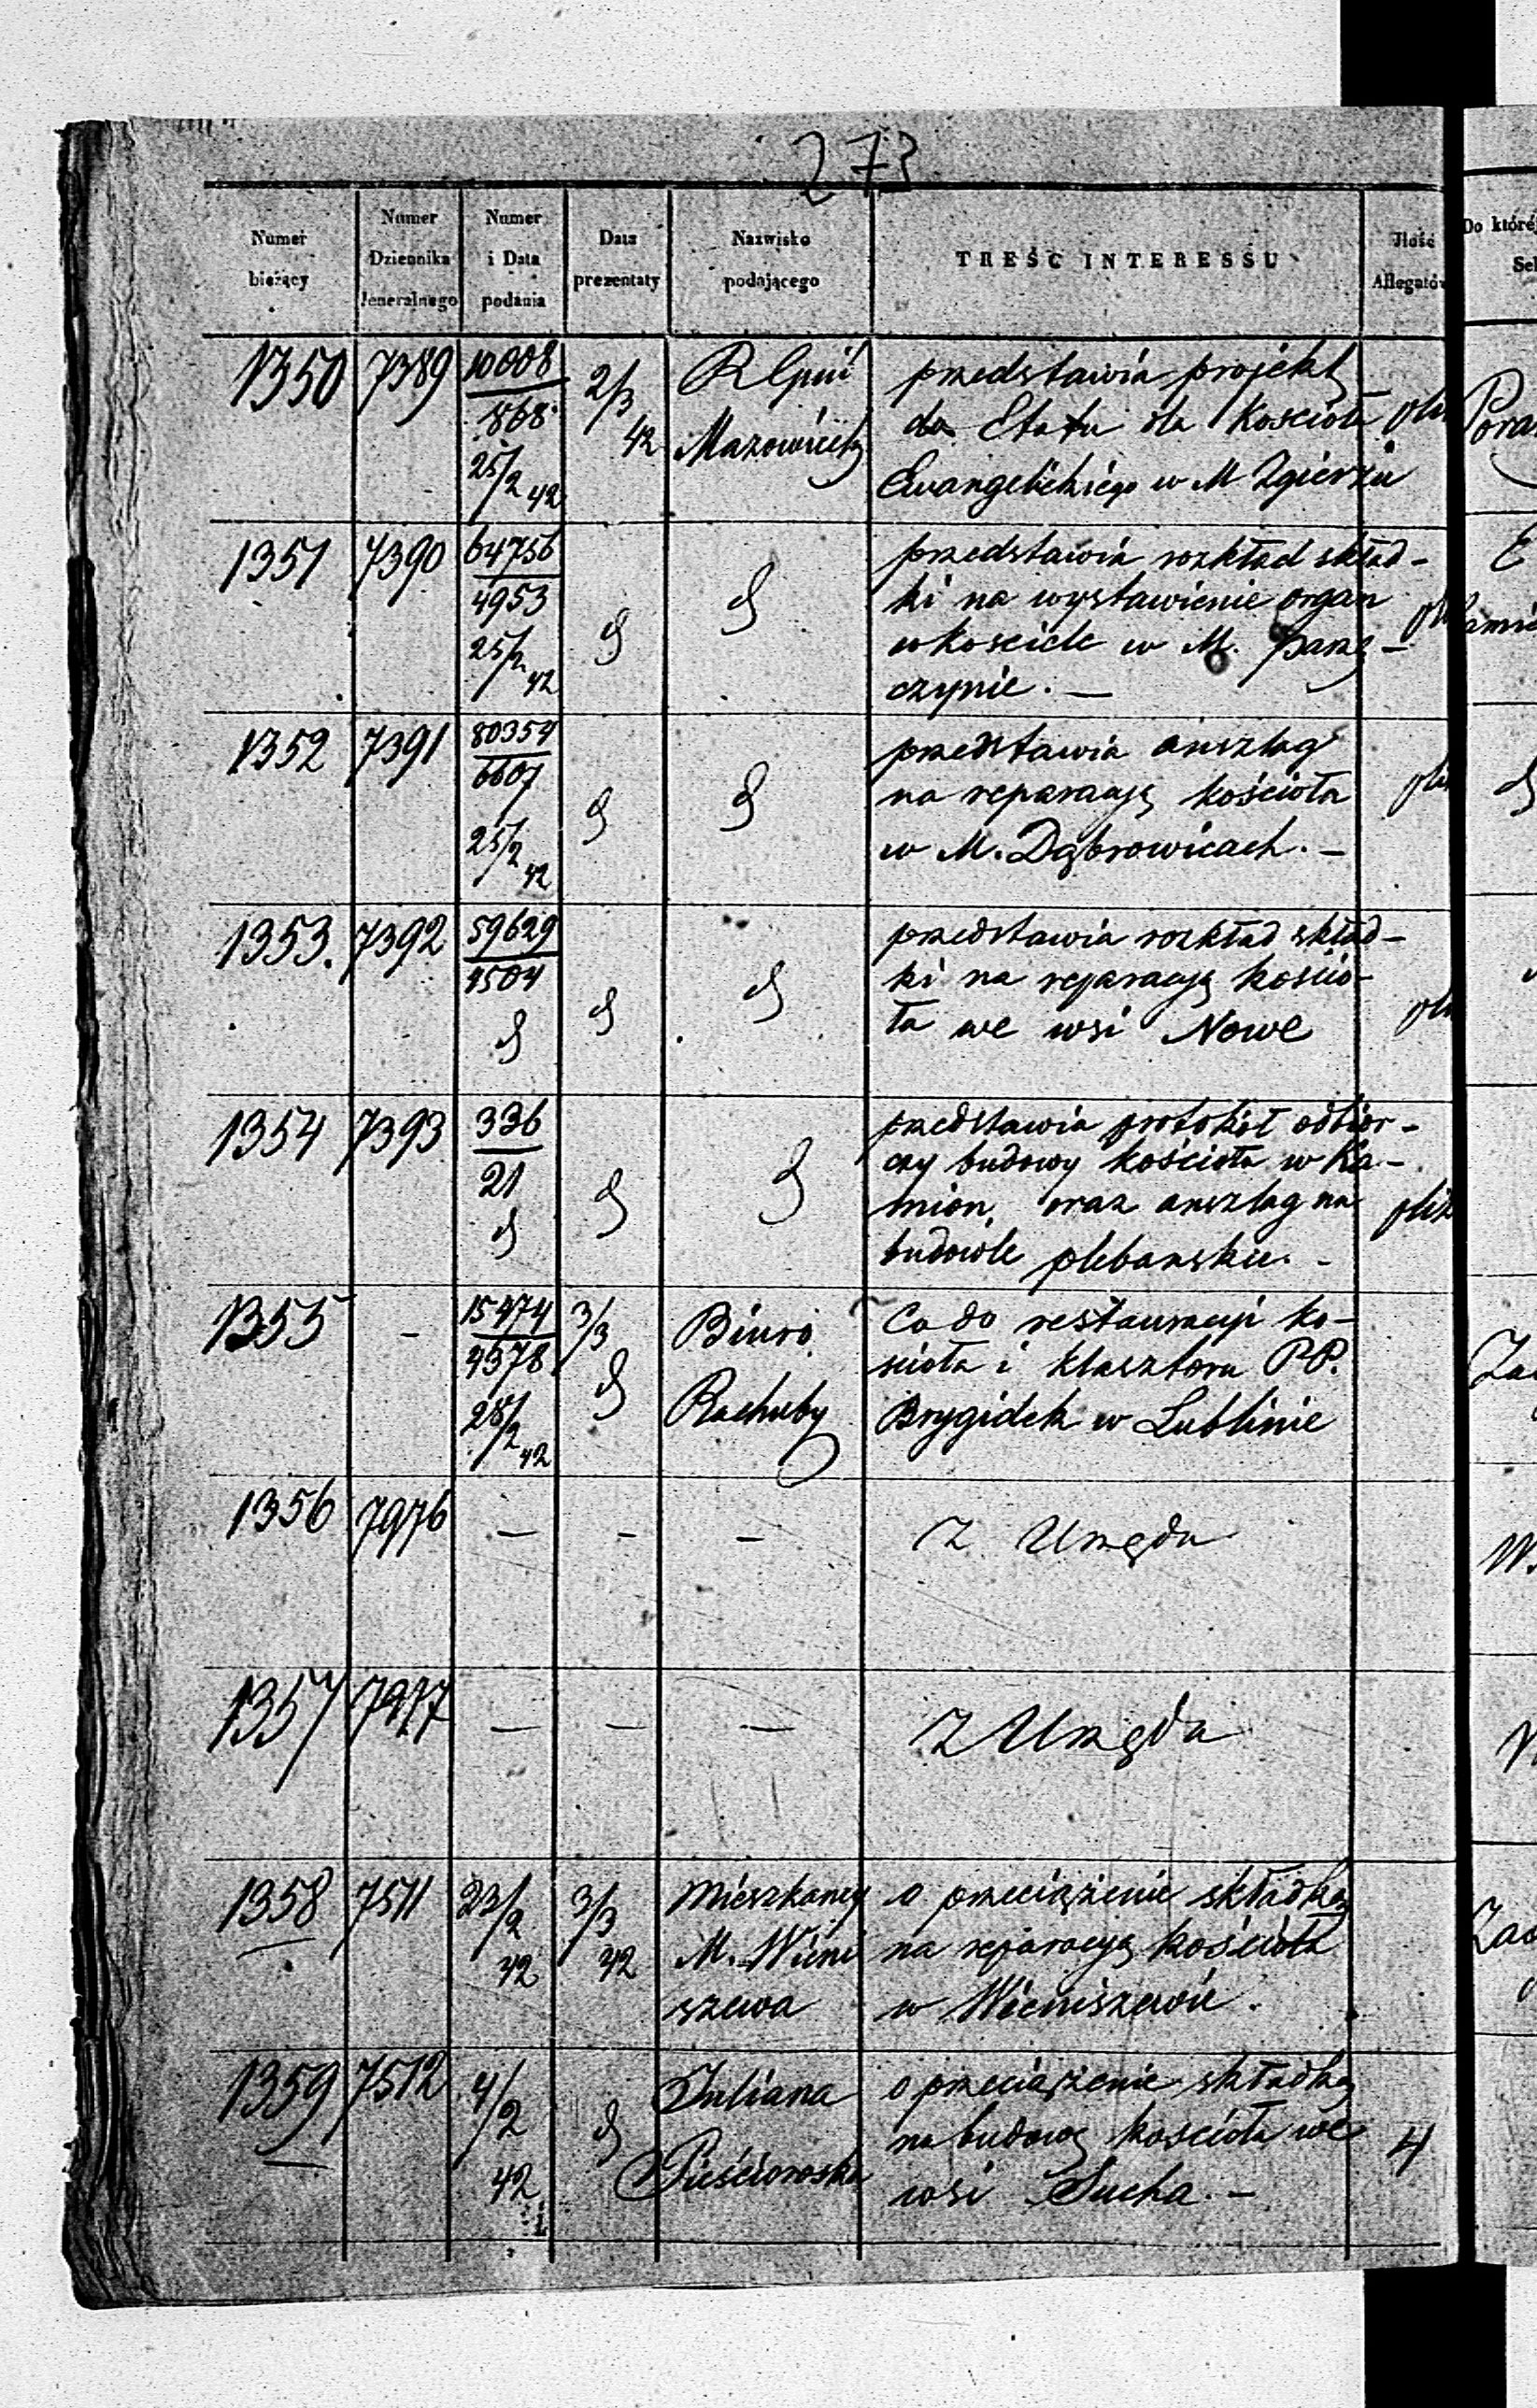 273
Numer bieżący
Numer Dziennika Jeneralnego
Numer i Data podania
Data prezentaty
Nazwisko podającego
TREŚĆ INTERESSU
Ilość Allegatów
Do której
1350 7389 10008 868 25/2 42 2/3 42
Mazowiecki
przedstawia projekt
do Etatu dla Kościoła
Ewangelickiego w M Zgierzu
1351 7390 64756 4953 25/2 42
przedstawia rozkład skład-
ki na wystawienie organ
w kosciele w M. Parzę-
czynie. —
1352 7391 80354 6607 25/2 42
przedstawia anszlag
na reparacyą kościoła
w M. Dąbrowicach. —
1353. 7392 59629 4504
przedstawia rozkład skład-
ki na reparacyą kościo-
ła we wsi Nowe
1354 7393 336 21
przedstawia protokół odbior-
czy budowy kościoła w Ka-
mion, oraz anszlag na
budowle plebanskie. -
1355 - 15474 4578 28/2 42 3/3
Biuro
Rachuby
Co do restauracyi ko-
scioła i klasztoru PP.
Brygidek w Lublinie
1356 7976 — - —
Z Urzędu
1357 7977 — — —
Z Urzędu
1358 7511 23/2 42 3/3 42
Mieszkancy
M. Wieni
szewa
o przeciążenie składką
na reparacyą kościoła
w Wieniszewie.
1359 7512 4/2 42
Juliana
Pieściorowska
o przeciążenie składką
na budowę kościoła we
wsi Sucha. -
4